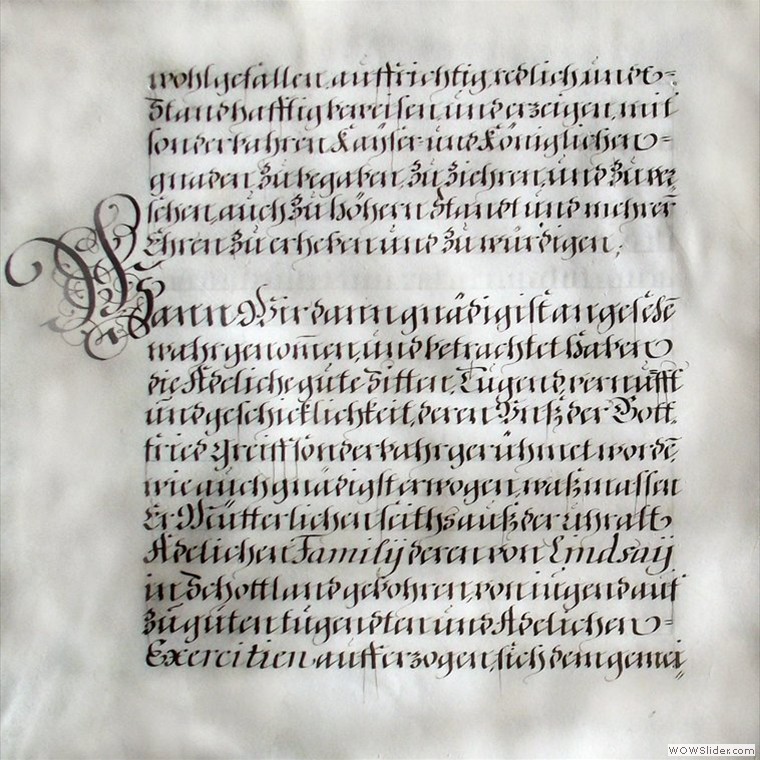 wohlgefallen, auffrichtig, redlich, undt=
Standhafftig beweisen, und erzeigen, mit
sonderbahren Kaÿser- und Königlichen=
gnaden Zu begaben, Zu Ziehren, und Zu ver=
sehen, auch Zu höhern Standt und mehrern̄
Ehren Zu erheben und Zu würdigen;
Wann Wir dann gnädigist angesehē
wahrgenom̄en, und betrachtet haben
die Adeliche gute Sitten, Tugend, vernufft
und geschicklichkeit, deren Unß der Gott,
fried Greiff sonderbahr gerühmet wordē,
wie auch gnädigst erwogen, waßmassen
Er Mütterlichen seiths auß der uhralt
Adelichen Familÿ deren von Lindsaÿ
in Schottland gebohren, von iugend auf
Zu guten tugendten und Adelichen=
Exercitien aufferzogen, sich dem gemei=
WOWSlider.com